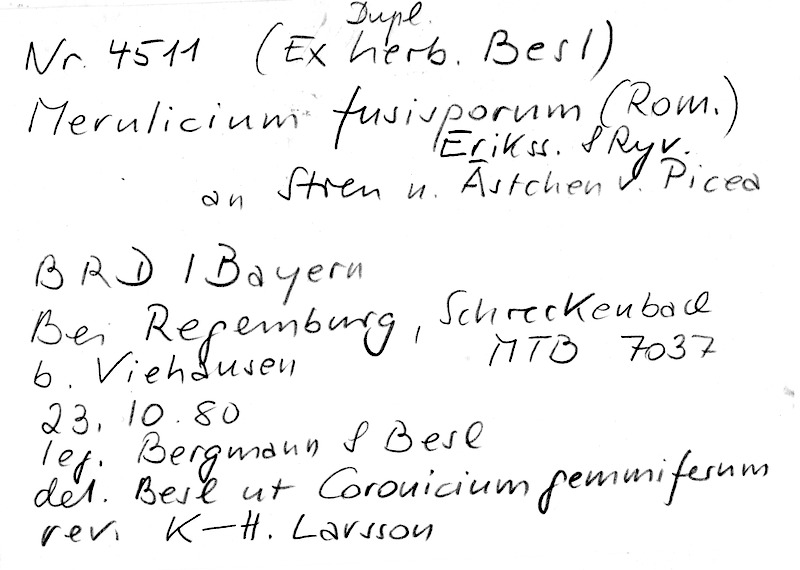 Dupl.
Nr. 4511 (Ex herb. Besl)
Merulicium fusisporum (Rom.)
Erikss. & Ryv.
an Streu u. Ästchen v. Picea
BRD / Bayern
Bei Regensburg, Schreckenbach
b. Viehausen MTB 7037
23. 10. 80
leg. Bergmann & Besl
det. Besl ut Coronicium gemmiferum
rev. K-H. Larsson